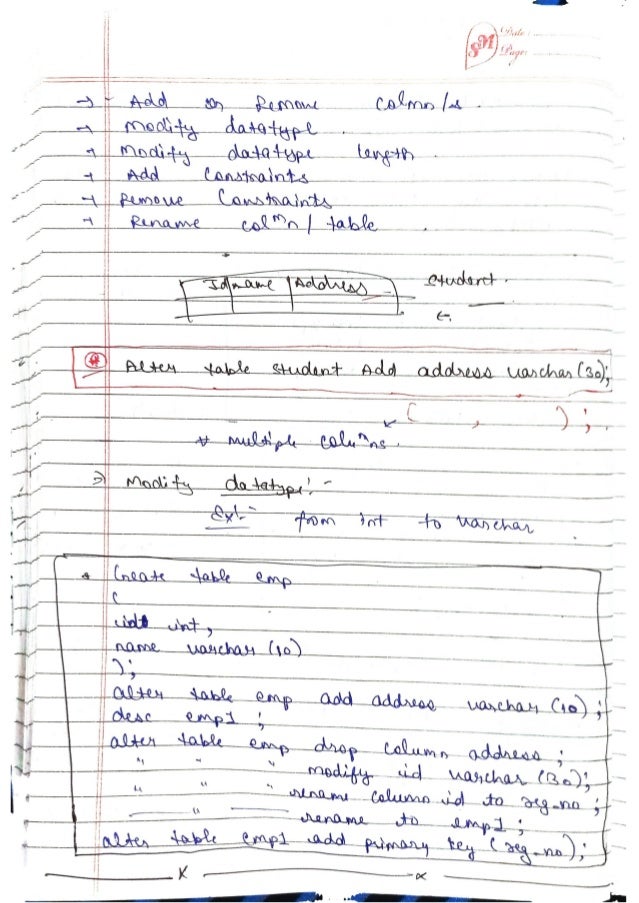 SM Date:
Page:
→ Add or Remove Colmn/s.
→ Modify datatype.
→ Modify datatype length.
→ Add Constraints
→ Remove Constraints
→ Rename colmn / table
Id name Address student.
Alter table student Add address varchar (30);
( , ) ;
* multiple colmns.
⇒ Modify datatype:-
Ex:- from int to varchar
* Create table emp
(
id int,
name varchar (10)
);
alter table emp add address varchar (10);
desc emp1 ;
alter table emp drop column address ;
" " " modify id varchar (30);
" " " rename column id to reg_no ;
" rename to emp1 ;
alter table emp1 add primary key (reg_no);
x x